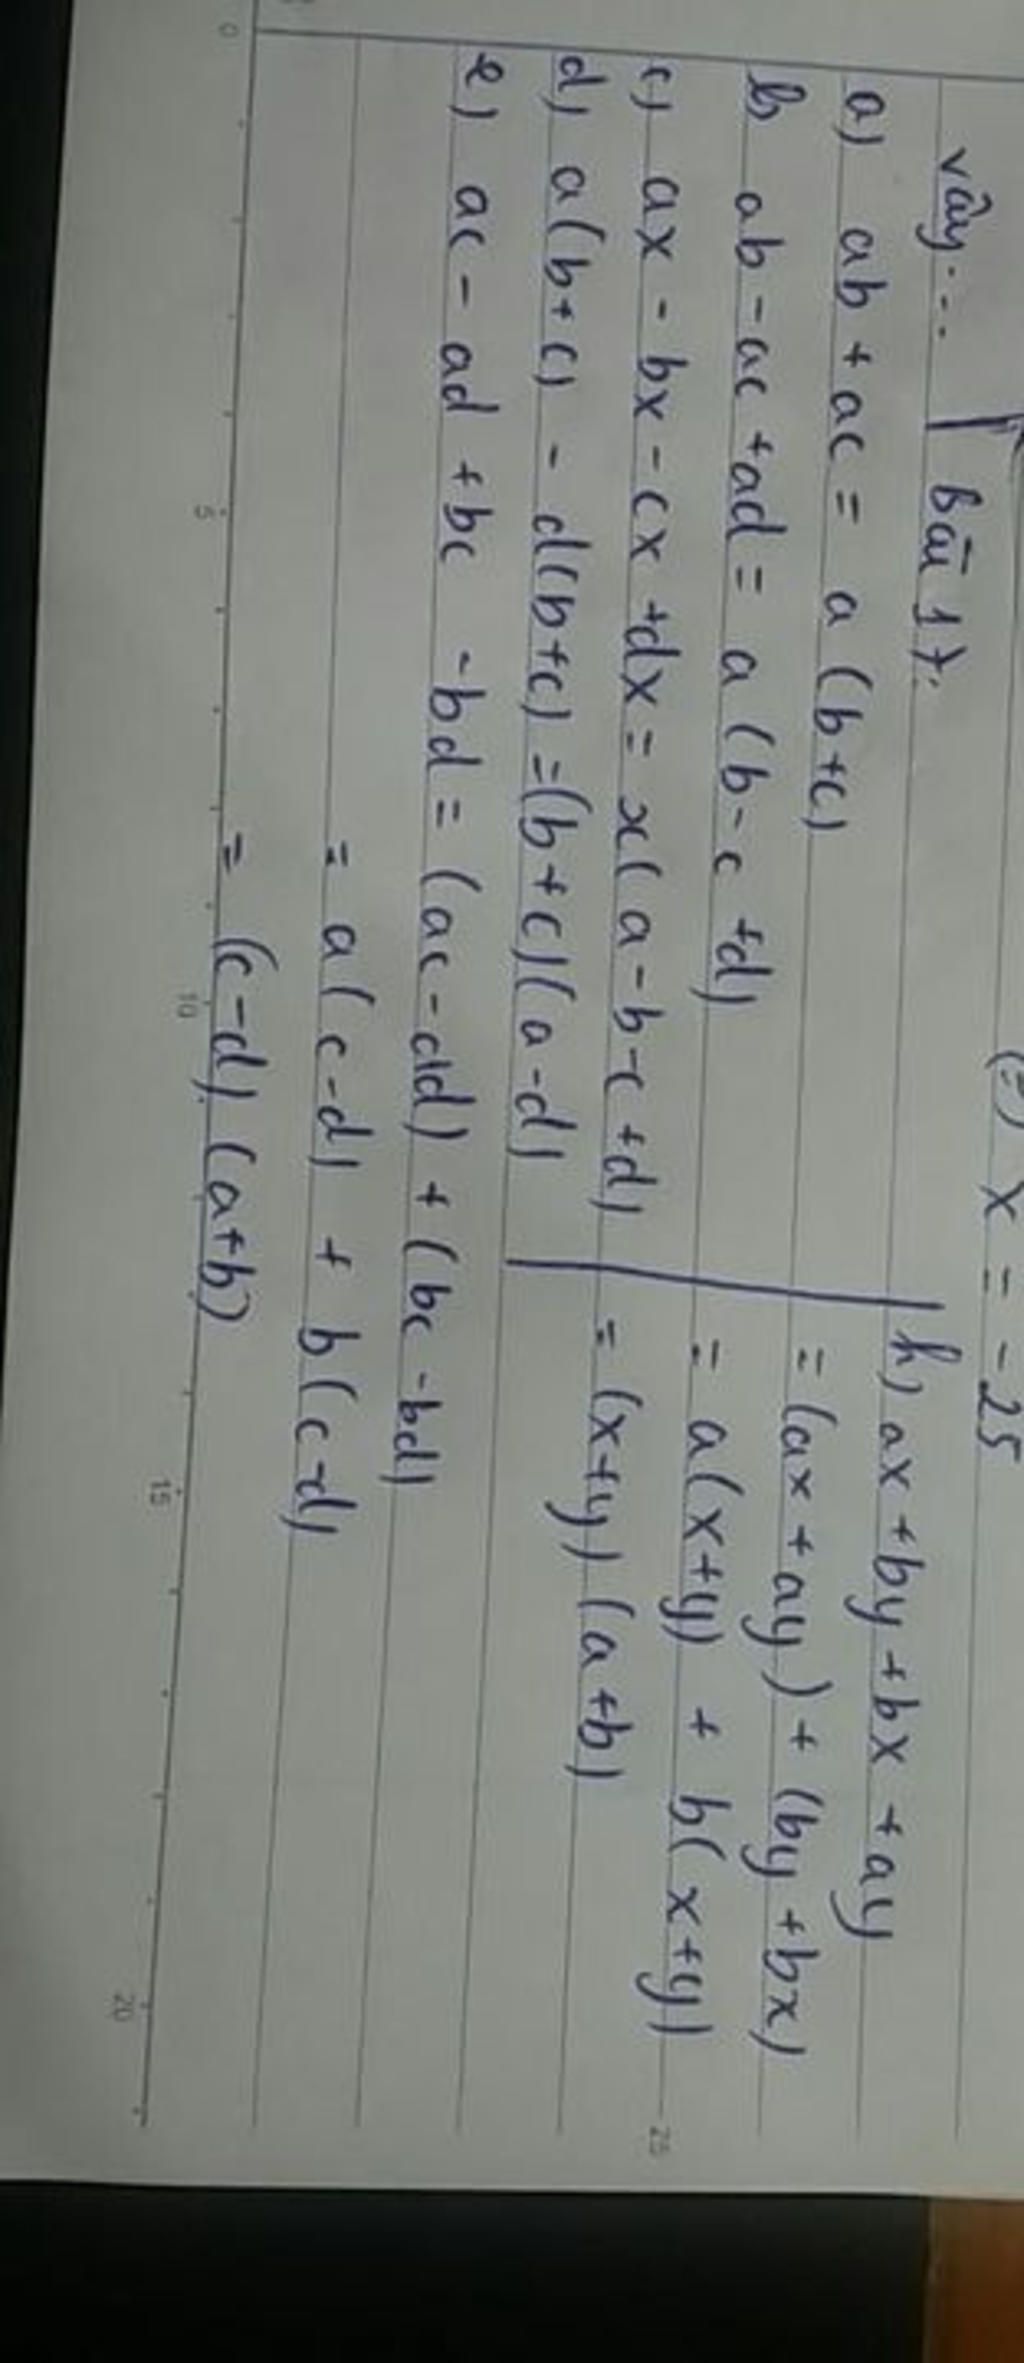 x = -25
vậy...
Bài 17:
a) ab + ac = a (b+c)
b) ab - ac + ad = a (b - c + d)
c) ax - bx - cx + dx = x(a - b - c + d)
d) a(b+c) - d(b+c) = (b+c)(a-d)
e) ac - ad + bc - bd = (ac - ad) + (bc - bd)
= a(c-d) + b(c-d)
= (c-d) (a+b)
h) ax + by + bx + ay
= (ax + ay) + (by + bx)
= a(x+y) + b(x+y)
= (x+y) (a+b)
0 5 10 15 20
25